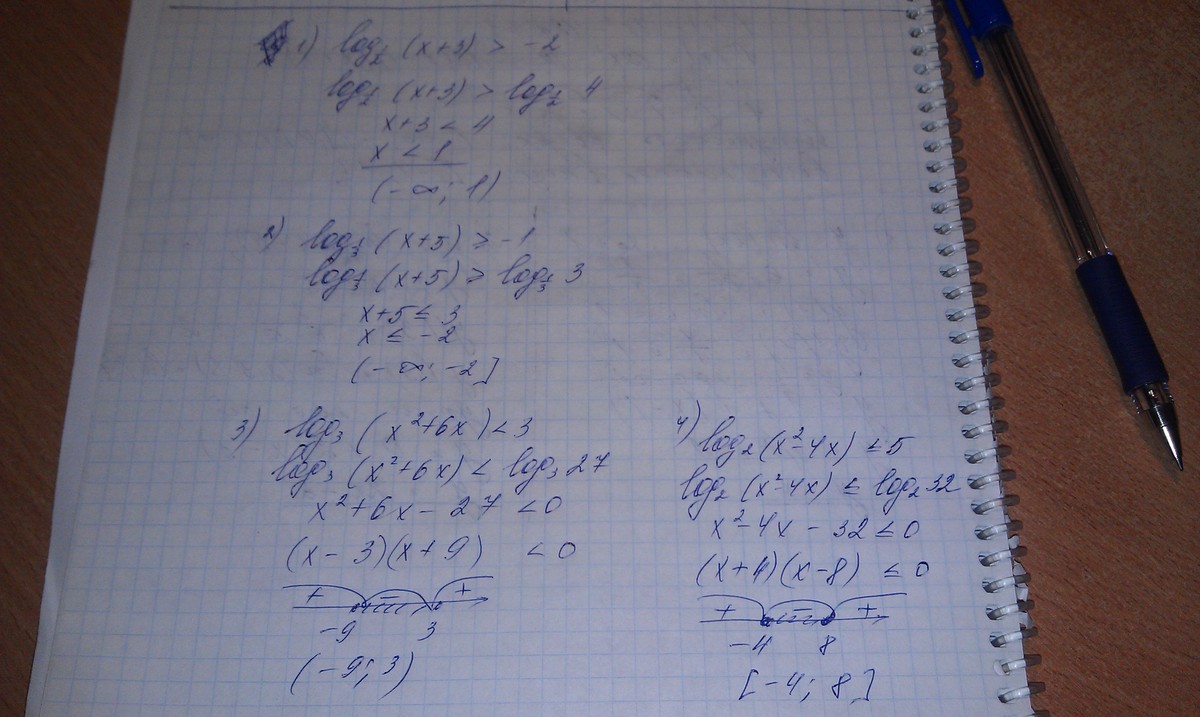 1) log½ (x+3) > -2
log½ (x+3) > log½ 4
x+3 < 4
x < 1
(-∞; 1)
2) log⅓ (x+5) ≥ -1
log⅓ (x+5) ≥ log⅓ 3
x+5 ≤ 3
x ≤ -2
(-∞; -2]
3) log₃ (x²+6x) < 3
log₃ (x²+6x) < log₃ 27
x²+6x - 27 < 0
(x-3)(x+9) < 0
+ - +
-9 3
(-9; 3)
4) log₂ (x²-4x) ≤ 5
log₂ (x²-4x) ≤ log₂ 32
x²-4x - 32 ≤ 0
(x+4)(x-8) ≤ 0
+ - +
-4 8
[-4; 8]